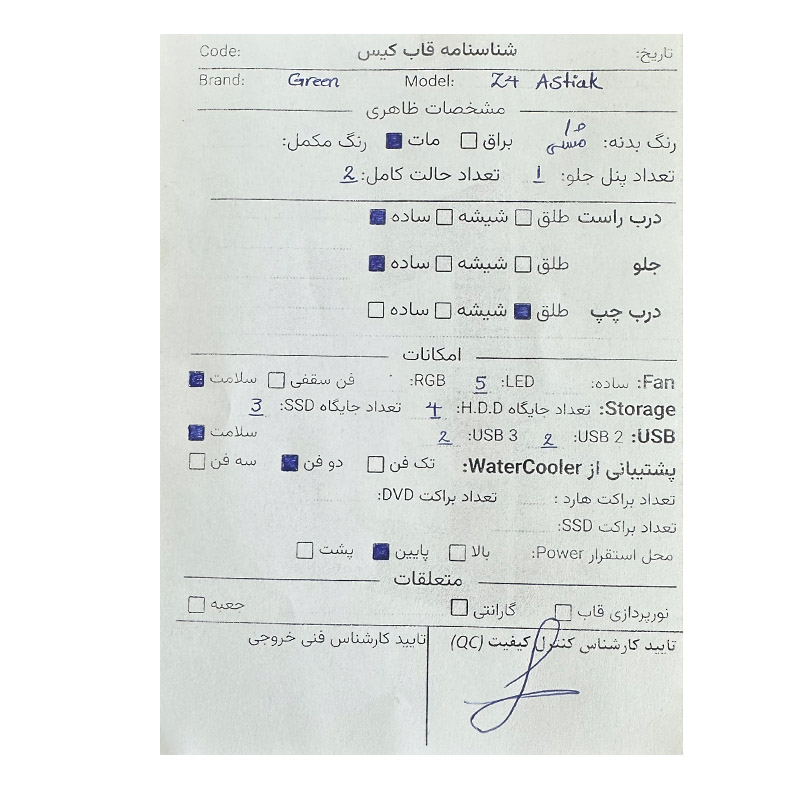 شناسنامه قاب کیس
تاریخ:
Code:
Brand: Green Model: Z4 Astiak
مشخصات ظاهری
رنگ بدنه: مشکی براق مات رنگ مکمل:
تعداد پنل جلو: 1 تعداد حالت کامل: 2
درب راست طلق شیشه ساده
جلو طلق شیشه ساده
درب چپ طلق شیشه ساده
امکانات
Fan: ساده: LED: 5 RGB: فن سقفی سلامت
Storage: تعداد جایگاه H.D.D: 4 تعداد جایگاه SSD: 3
USB: USB 2: 2 USB 3: 2 سلامت
پشتیبانی از WaterCooler: تک فن دو فن سه فن
تعداد براکت هارد : تعداد براکت DVD:
تعداد براکت SSD:
محل استقرار Power: بالا پایین پشت
متعلقات
نورپردازی قاب گارانتی جعبه
تایید کارشناس کنترل کیفیت (QC) تایید کارشناس فنی خروجی